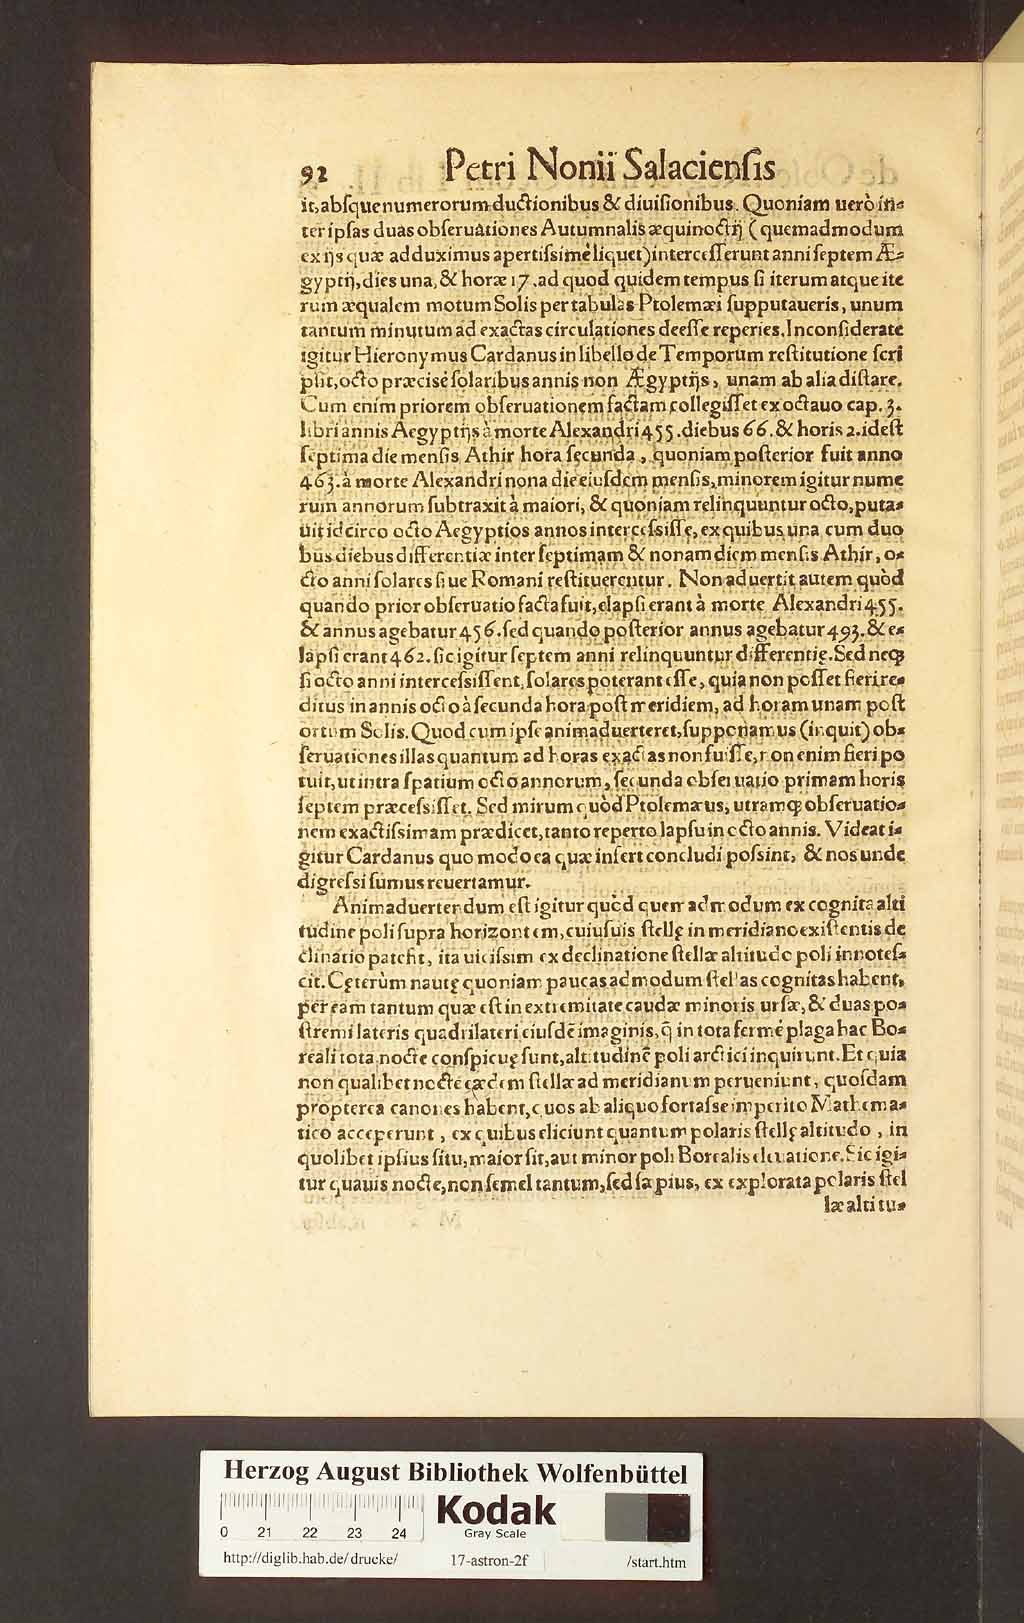 92 Petri Nonii Salaciensis
it, absque numerorum ductionibus & diuisionibus. Quoniam uerò in-
ter ipsas duas obseruationes Autumnalis æquinoctij (quemadmodum
ex ijs quæ adduximus apertissimè liquet) intercesserunt anni septem Æ-
gyptij, dies una, & horæ 17. ad quod quidem tempus si iterum atque ite
rum æqualem motum Solis per tabulas Ptolemæi supputaueris, unum
tantum minutum ad exactas circulationes deesse reperies. Inconsiderate
igitur Hieronymus Cardanus in libello de Temporum restitutione scri
psit, octo præcisè solaribus annis non Ægyptijs, unam ab alia distare.
Cum enim priorem obseruationem factam collegisset ex octauo cap. 3.
libri annis Aegyptijs à morte Alexandri 455. diebus 66. & horis 2. id est
septima die mensis Athir hora secunda, quoniam posterior fuit anno
463. à morte Alexandri nona die eiusdem mensis, minorem igitur nume
rum annorum subtraxit à maiori, & quoniam relinquuntur octo, puta-
uit idcirco octo Aegyptios annos intercessisse, ex quibus una cum duo
bus diebus differentiæ inter septimam & nonam diem mensis Athir, o-
cto anni solares siue Romani restituerentur. Non aduertit autem quòd
quando prior obseruatio facta fuit, elapsi erant à morte Alexandri 455.
& annus agebatur 456. sed quando posterior annus agebatur 493. & e-
lapsi erant 462. sic igitur septem anni relinquuntur differentię. Sed neq;
si octo anni intercessissent, solares poterant esse, quia non posset fieri re-
ditus in annis octo à secunda hora post meridiem, ad horam unam post
ortum Solis. Quod cum ipse animaduerteret, supponamus (inquit) ob-
seruationes illas quantum ad horas exactas non fuisse, non enim fieri po
tuit, ut intra spatium octo annorum, secunda obseruatio primam horis
septem præcessisset. Sed mirum quòd Ptolemæus, utramq; obseruatio-
nem exactissimam prædicet, tanto reperto lapsu in octo annis. Videat i-
gitur Cardanus quo modo ea quæ infert concludi possint, & nos unde
digressi sumus reuertamur.
Animaduertendum est igitur quòd quemadmodum ex cognita alti
tudine poli supra horizontem, cuiusuis stellę in meridiano existentis de
clinatio patent, ita uicissim ex declinatione stellæ altitudo poli innotes-
cit. Cęterùm nautę quoniam paucas admodum stellas cognitas habent,
per eam tantum quæ est in extremitate caudæ minoris ursæ, & duas po-
stremi lateris quadrilateri eiusdē imaginis, q̄ in tota fermè plaga hac Bo-
reali tota nocte conspicuę sunt, altitudinē poli arctici inquirunt. Et quia
non qualibet nocte eædem stellæ ad meridianum perueniunt, quosdam
propterea canones habent, quos ab aliquo fortasse imperito Mathema-
tico acceperunt, ex quibus eliciunt quantum polaris stellę altitudo, in
quolibet ipsius situ, maior sit, aut minor poli Borealis eleuatione. Sic igi-
tur quauis nocte, non semel tantum, sed sæpius, ex explorata polaris stel
læ altitu-
Herzog August Bibliothek Wolfenbüttel
0 21 22 23 24
Kodak
Gray Scale
http://diglib.hab.de/drucke/ 17-astron-2f /start.htm